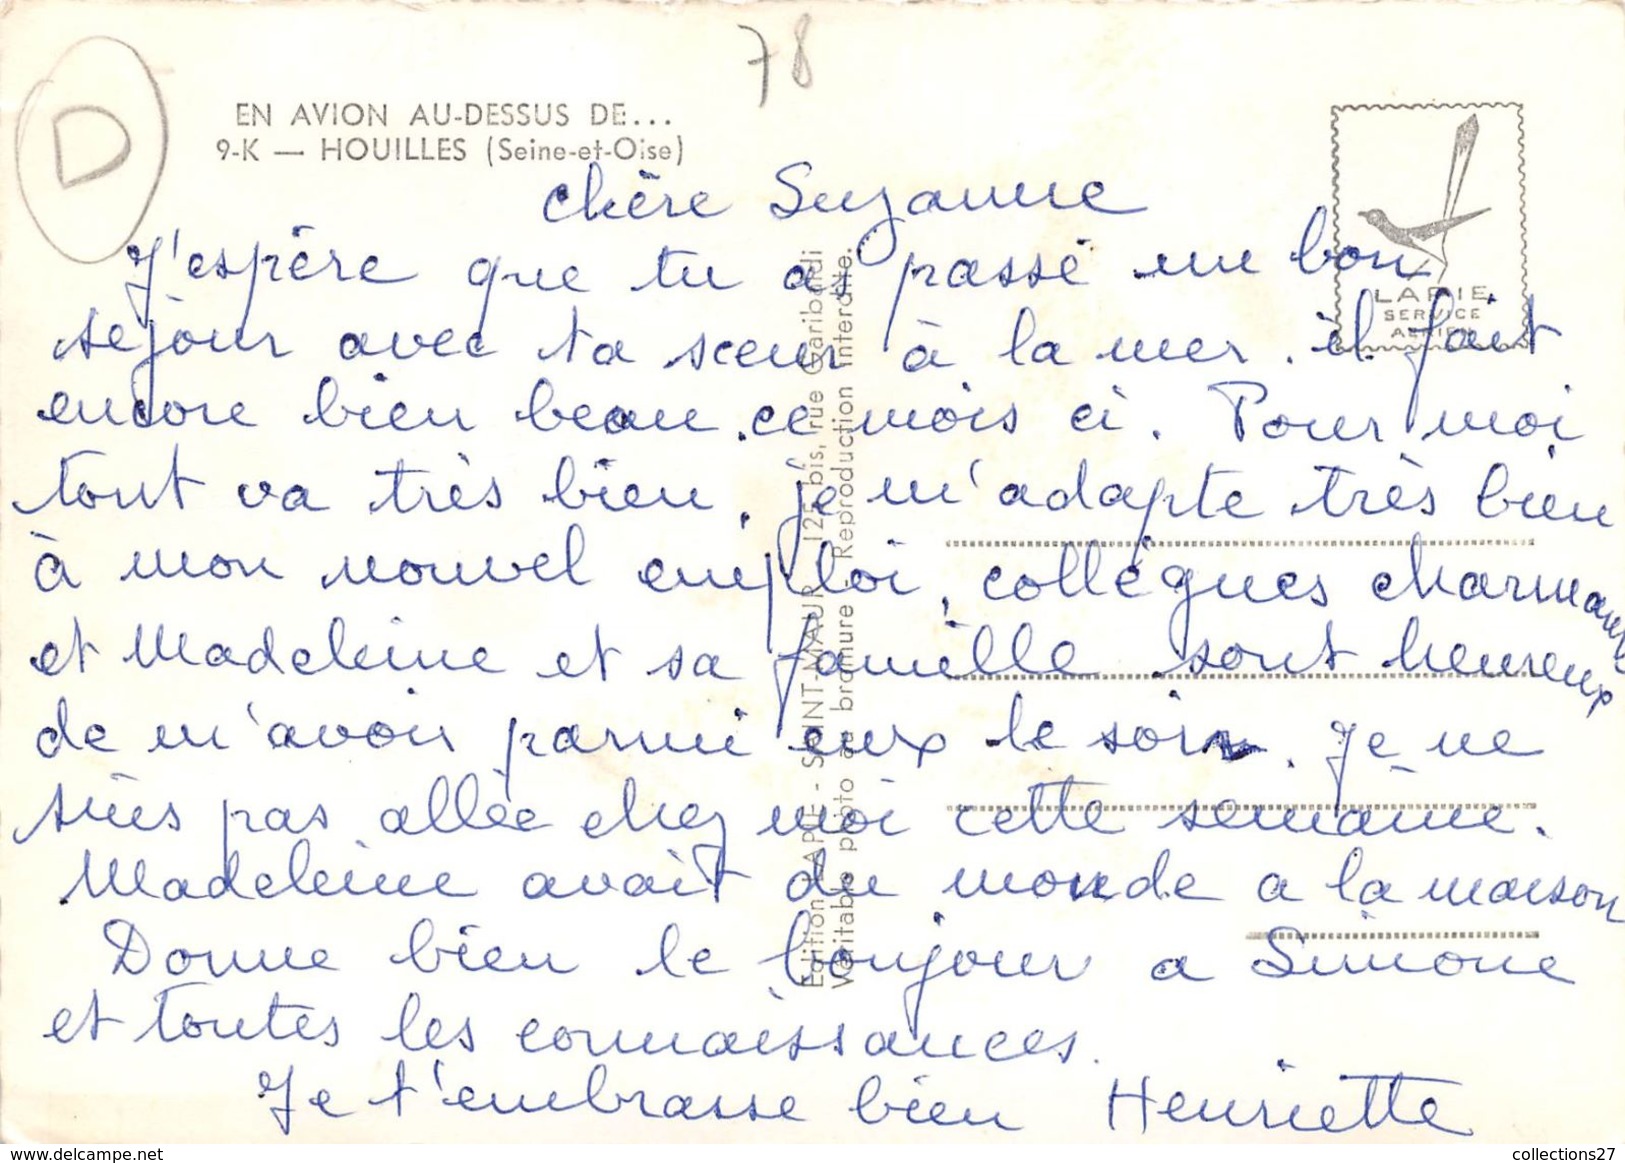 78
D
EN AVION AU-DESSUS DE...
9-K — HOUILLES (Seine-et-Oise)
LAPIE
SERVICE
AERIEN
chère Suzanne
J'espère que tu as passé un bon
séjour avec ta sœur à la mer. il fait
encore bien beau ce mois ci. Pour moi
tout va très bien, je m'adapte très bien
à mon nouvel emploi, collègues charmants
et Madeleine et sa famille sont heureux
de m'avoir parmi eux le soir. Je ne
suis pas allée chez moi cette semaine.
Madeleine avait du monde a la maison
Donne bien le bonjour a Simone
et toutes les connaissances.
Je t'embrasse bien Henriette
Edition LAPIE - SAINT-MAUR 125 bis, rue Garibaldi
Véritable photo au bromure - Reproduction interdite.
collections27